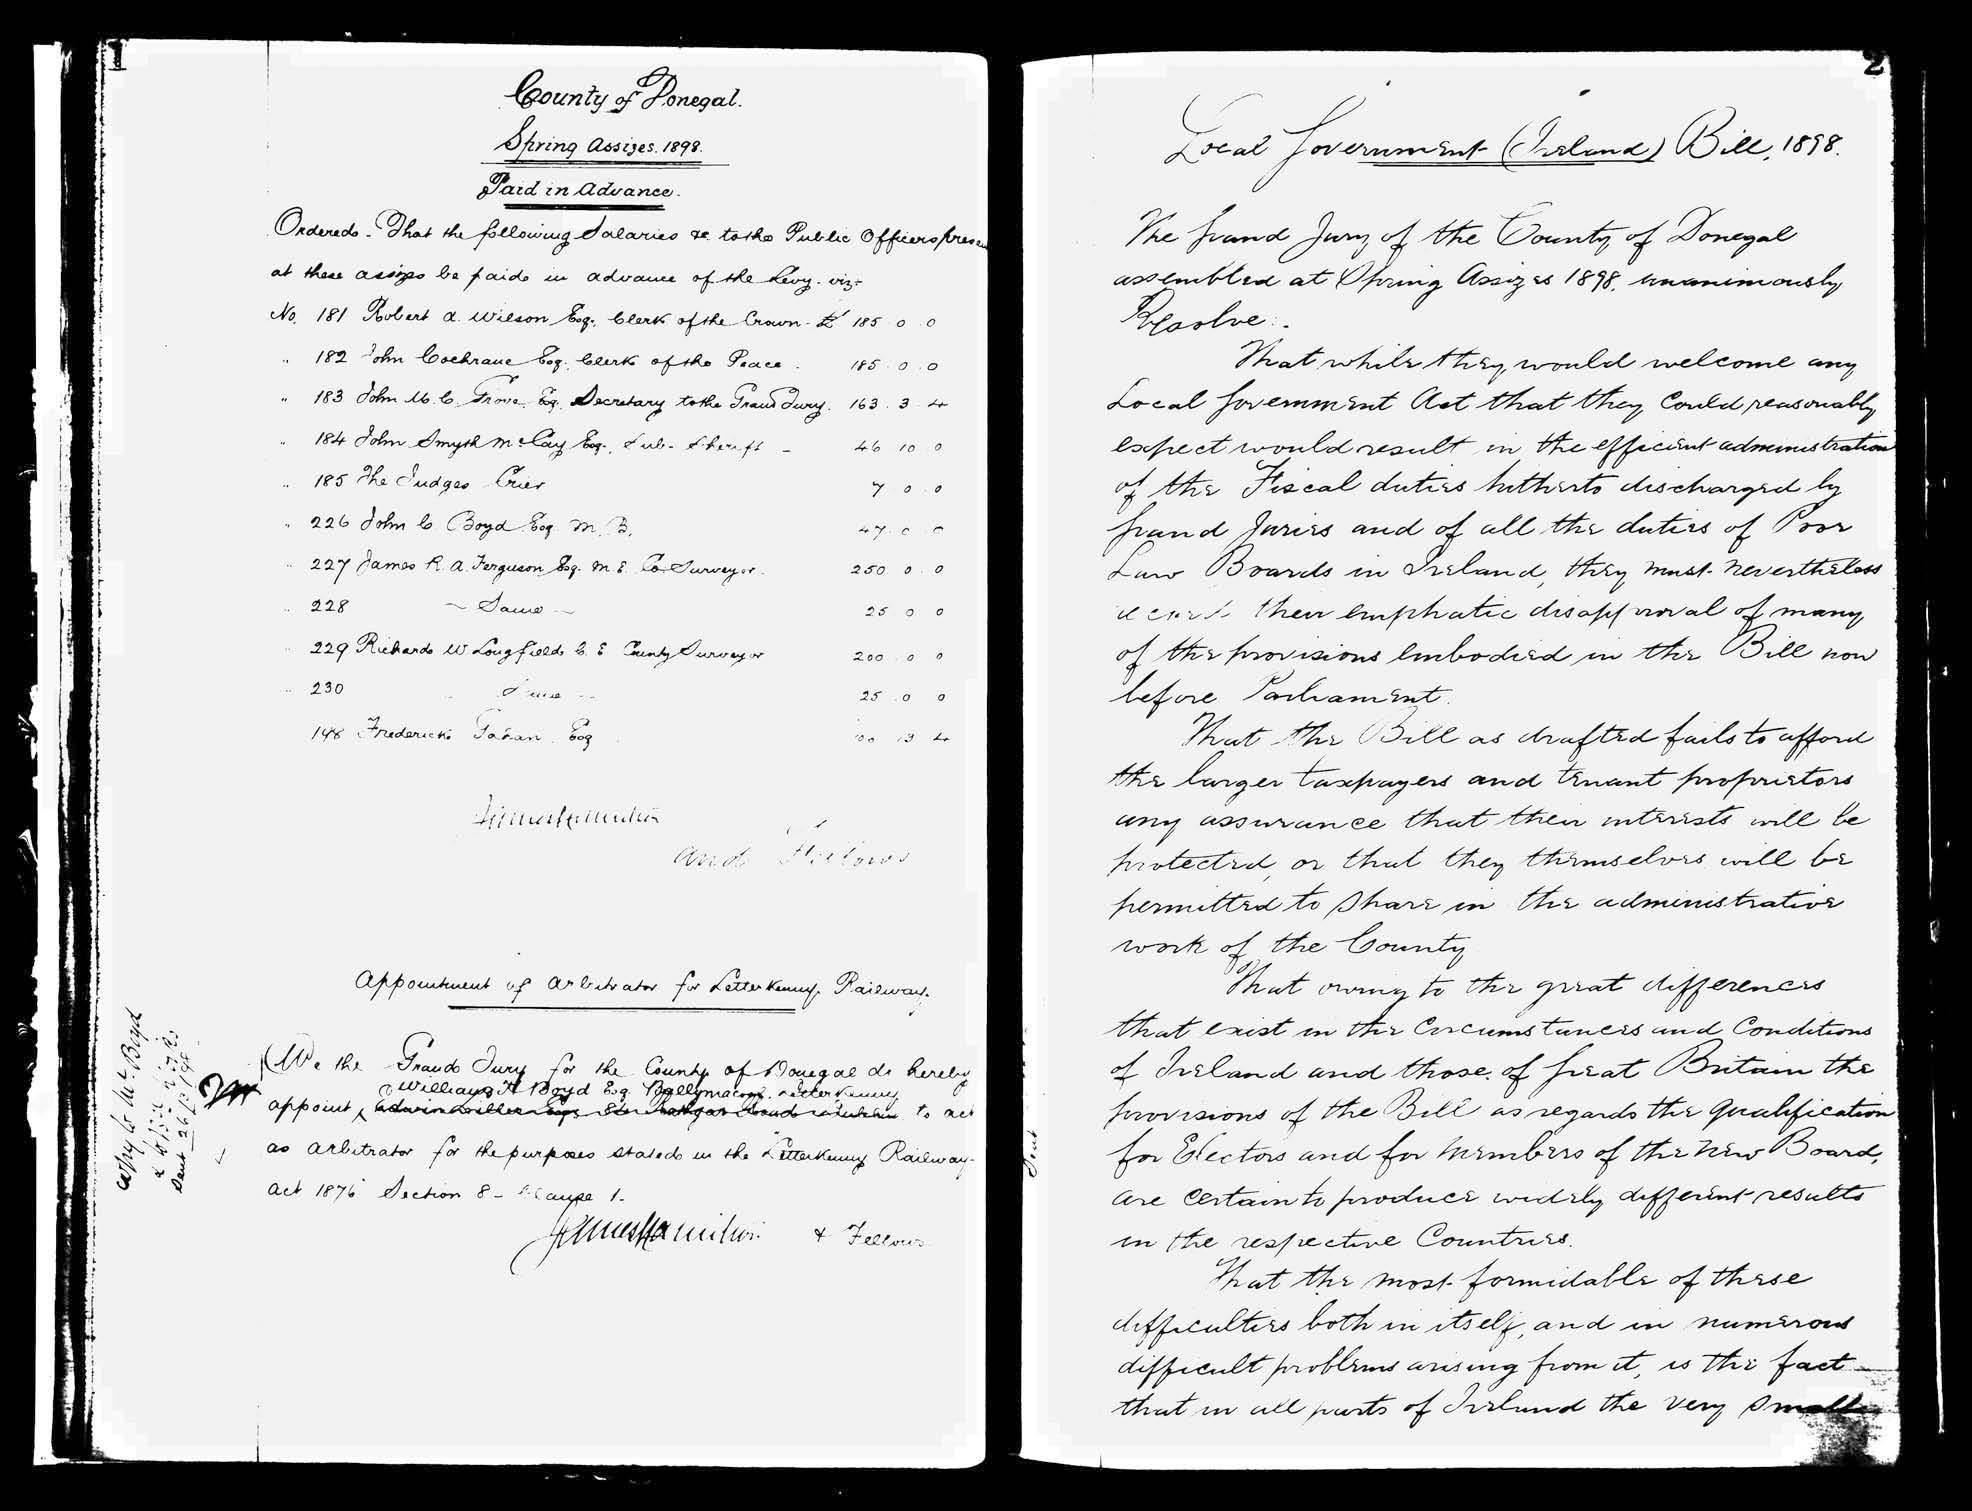 1
County of Donegal.
Spring Assizes. 1898.
Paid in Advance.
Ordered - That the following Salaries &c to the Public Officers
at these assizes be paid in advance of the Levy. viz:-
No. 181 Robert A. Wilson Esq. Clerk of the Crown - £ 185 . 0 . 0
" 182 John Cochrane Esq. Clerk of the Peace . 185 . 0 . 0
" 183 John M. C. Grove Esq. Secretary to the Grand Jury. 163 . 3 . 4
" 184 John Smyth McCay Esq. Sub-Sheriff - 46 10 0
" 185 The Judges Crier 7 0 . 0
" 226 John C. Boyd Esq. M. B. 47 . 0 . 0
" 227 James R. A. Ferguson Esq. M. E. Co Surveyor. 250 . 0 . 0
" 228 - Same - 25 0 0
" 229 Richard W Longfield C. E County Surveyor 200 . 0 0
" 230 " Same - 25 . 0 0
148 Frederick Gahan Esq 13 4
James Hamilton
and Fellows
Appointment of Arbitrator for Letterkenny Railway.
We the Grand Jury for the County of Donegal do hereby
William H Boyd Esq. Ballymacool, Letterkenny
appoint to act
as Arbitrator for the purposes stated in the Letterkenny Railway
Act 1876 Section 8 - Clause 1.
James Hamilton & Fellows
Copy to Mr Boyd
Sent
2
Local Government (Ireland) Bill, 1898.
The Grand Jury of the County of Donegal
assembled at Spring Assizes 1898, unanimously
Resolve:.
That while they would welcome any
Local Government Act that they could reasonably
expect would result in the efficient administration
of the Fiscal duties hitherto discharged by
Grand Juries and of all the duties of Poor
Law Boards in Ireland, they must nevertheless
record their emphatic disapproval of many
of the provisions embodied in the Bill now
before Parliament.
That the Bill as drafted fails to afford
the larger taxpayers and tenant proprietors
any assurance that their interests will be
protected, or that they themselves will be
permitted to share in the administrative
work of the County
That owing to the great differences
that exist in the Circumstances and Conditions
of Ireland and those of Great Britain the
provisions of the Bill as regards the qualification
for Electors and for Members of the New Board,
are certain to produce widely different results
in the respective Countries.
That the most formidable of these
difficulties both in itself, and in numerous
difficult problems arising from it, is the fact
that in all parts of Ireland the very small